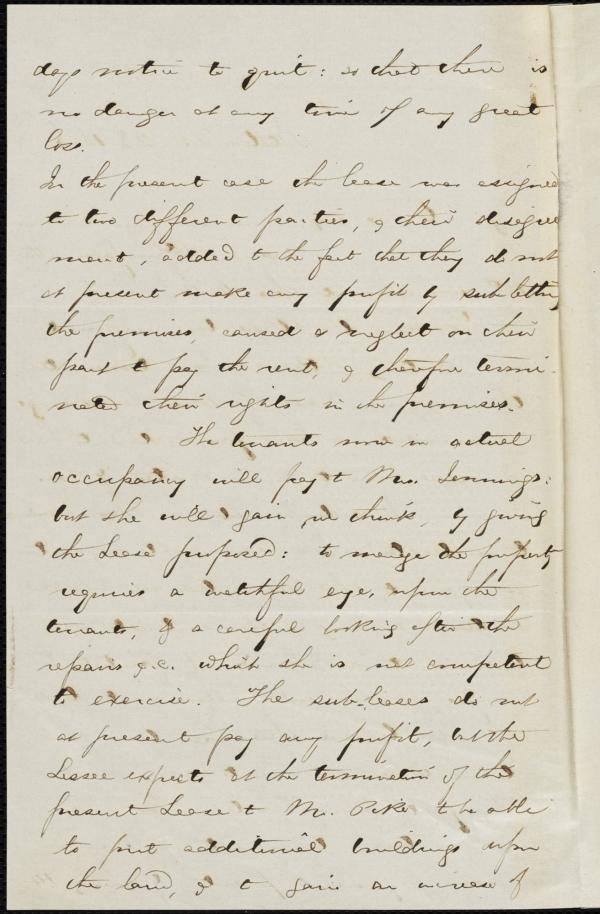 days notice to quit: so that there is
no danger at any time of any great
loss.
In the present case the lease was assigned
to two different parties, & their disagree
ment, added to the fact that they do not
at present make any profit by sub letting
the premises, caused a neglect on their
part to pay the rent, & therefore termi-
nated their rights in the premises.
The tenants now in actual
occupancy will pay to Mrs. Jennings:
but she will gain, we think, by giving
the Lease proposed: to manage the property
requires a watchful eye, upon the
tenants, & a careful looking after the
repairs &.c. which she is not competent
to exercise. The sub-leases do not
at present pay any profit, but the
Lessee expects at the termination of the
present Lease to Mr. Pike to be able
to put additional buildings upon
the land, & to gain an increase of